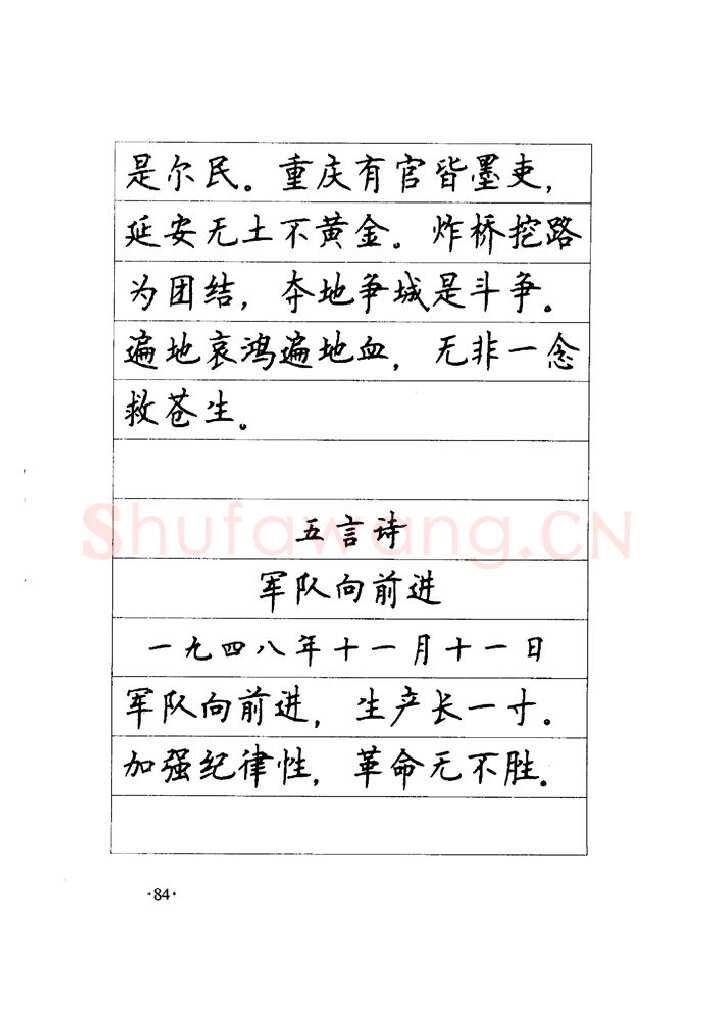 是尔民。重庆有官皆墨吏，
延安无土不黄金。炸桥挖路
为团结，夺地争城是斗争。
遍地哀鸿遍地血，无非一念
救苍生。
五言诗
Shufawang.CN
军队向前进
一九四八年十一月十一日
军队向前进，生产长一寸。
加强纪律性，革命无不胜。
·84·